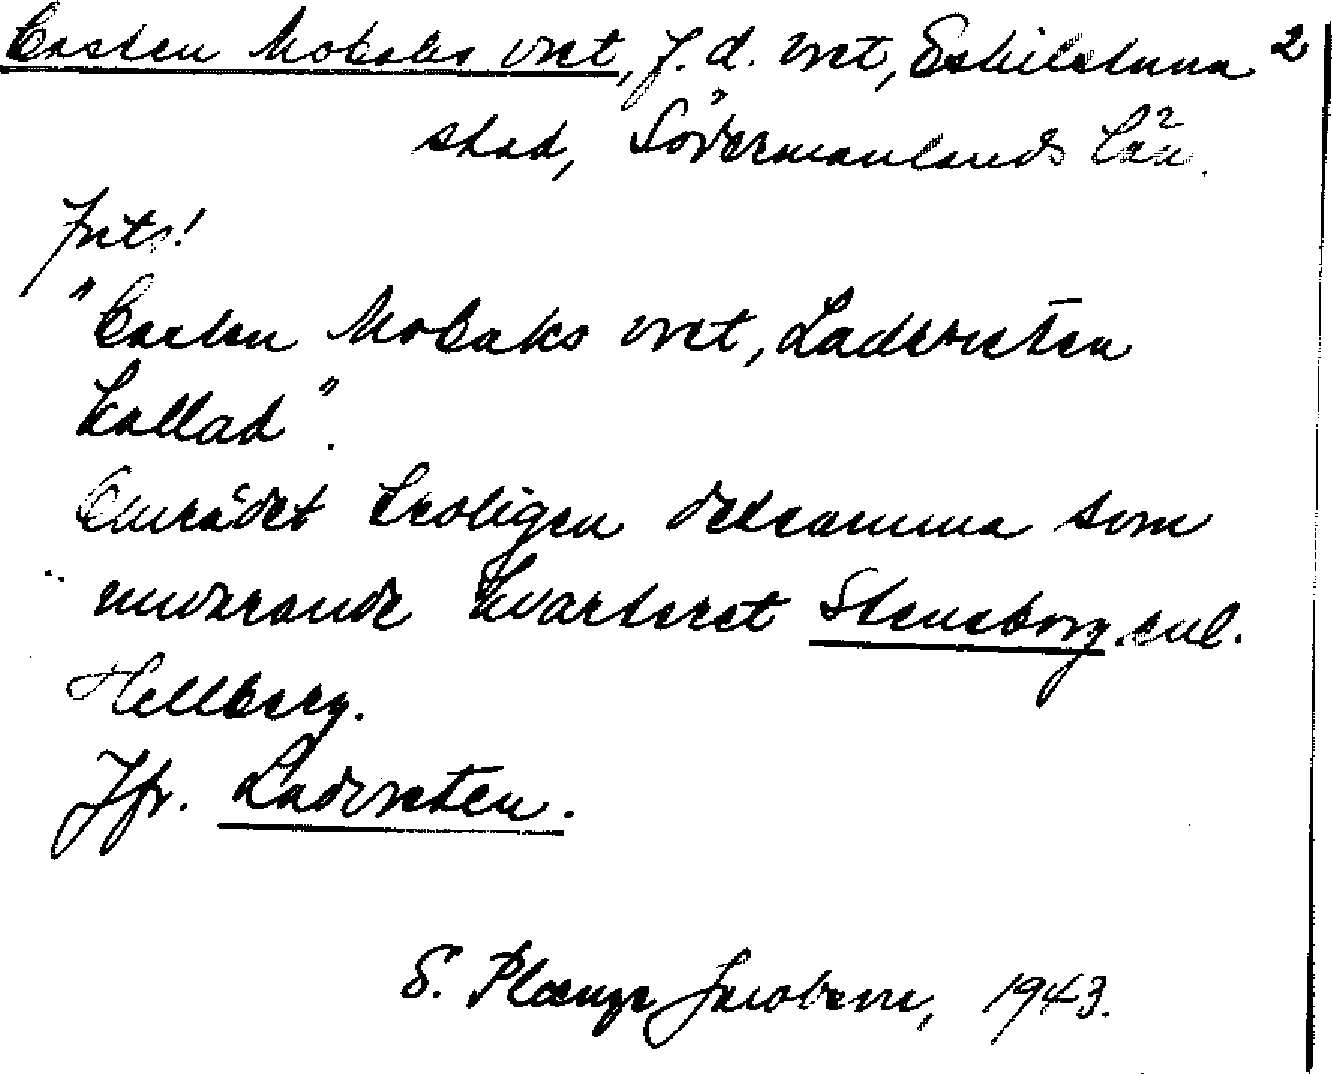 Casten Mobaks vret, f.d. vret, Eskilstuna 2
stad, Södermanlands län.
Forts!
"Casten Mobaks vret, Ladvreten
kallad".
Området troligen detsamma som
nuvarande kvarteret Stenborg enl.
Hellberg.
Jfr. Ladvreten.
S. Plænge Jacobson, 1943.